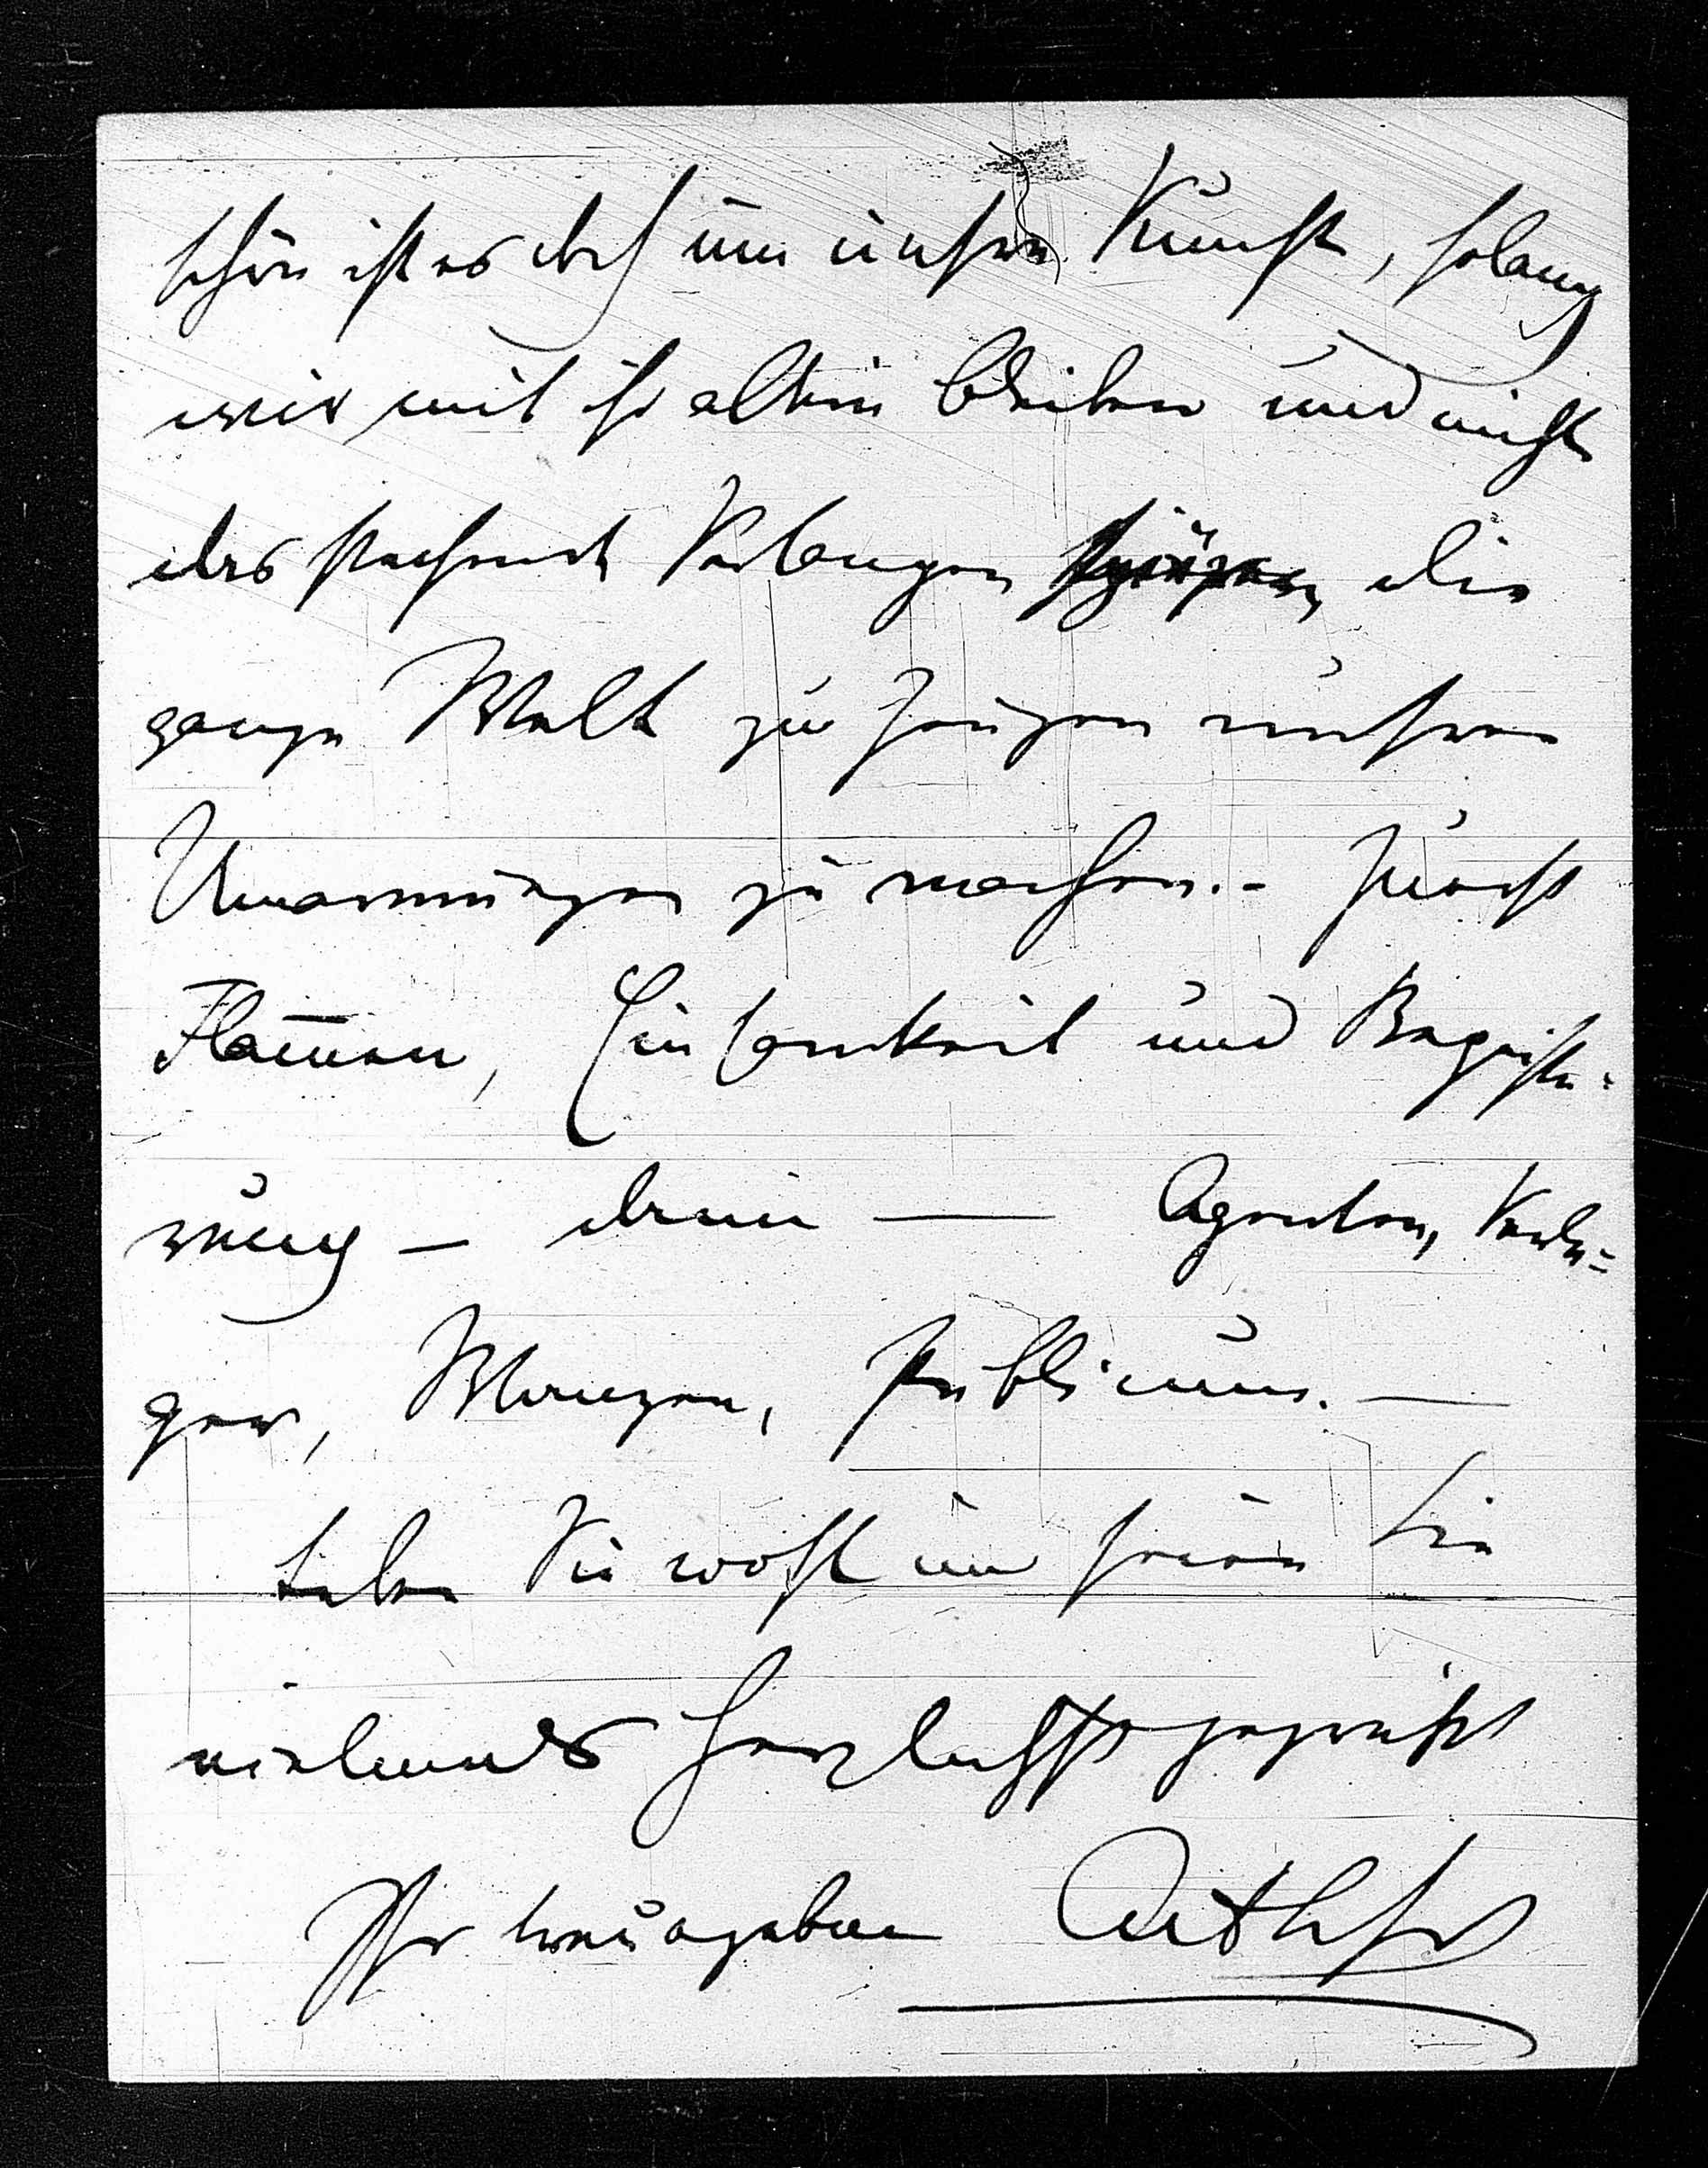 schön ist es doch um unsre Kunst, solang
wir mit ihr allein bleiben und nicht
das rasende Verlangen spüren, die
ganze Welt zu Zeugen unsrer
Umarmungen zu machen. – Zuerst
Flam̅en, Einsamkeit und Begeiste-
rung – dann — Agenten, Verle-
ger, Wanzen, Publicum. —
Leben Sie wohl und seien Sie
vielmals herzlichst gegrüßt
Ihr treuergebener ArthSch